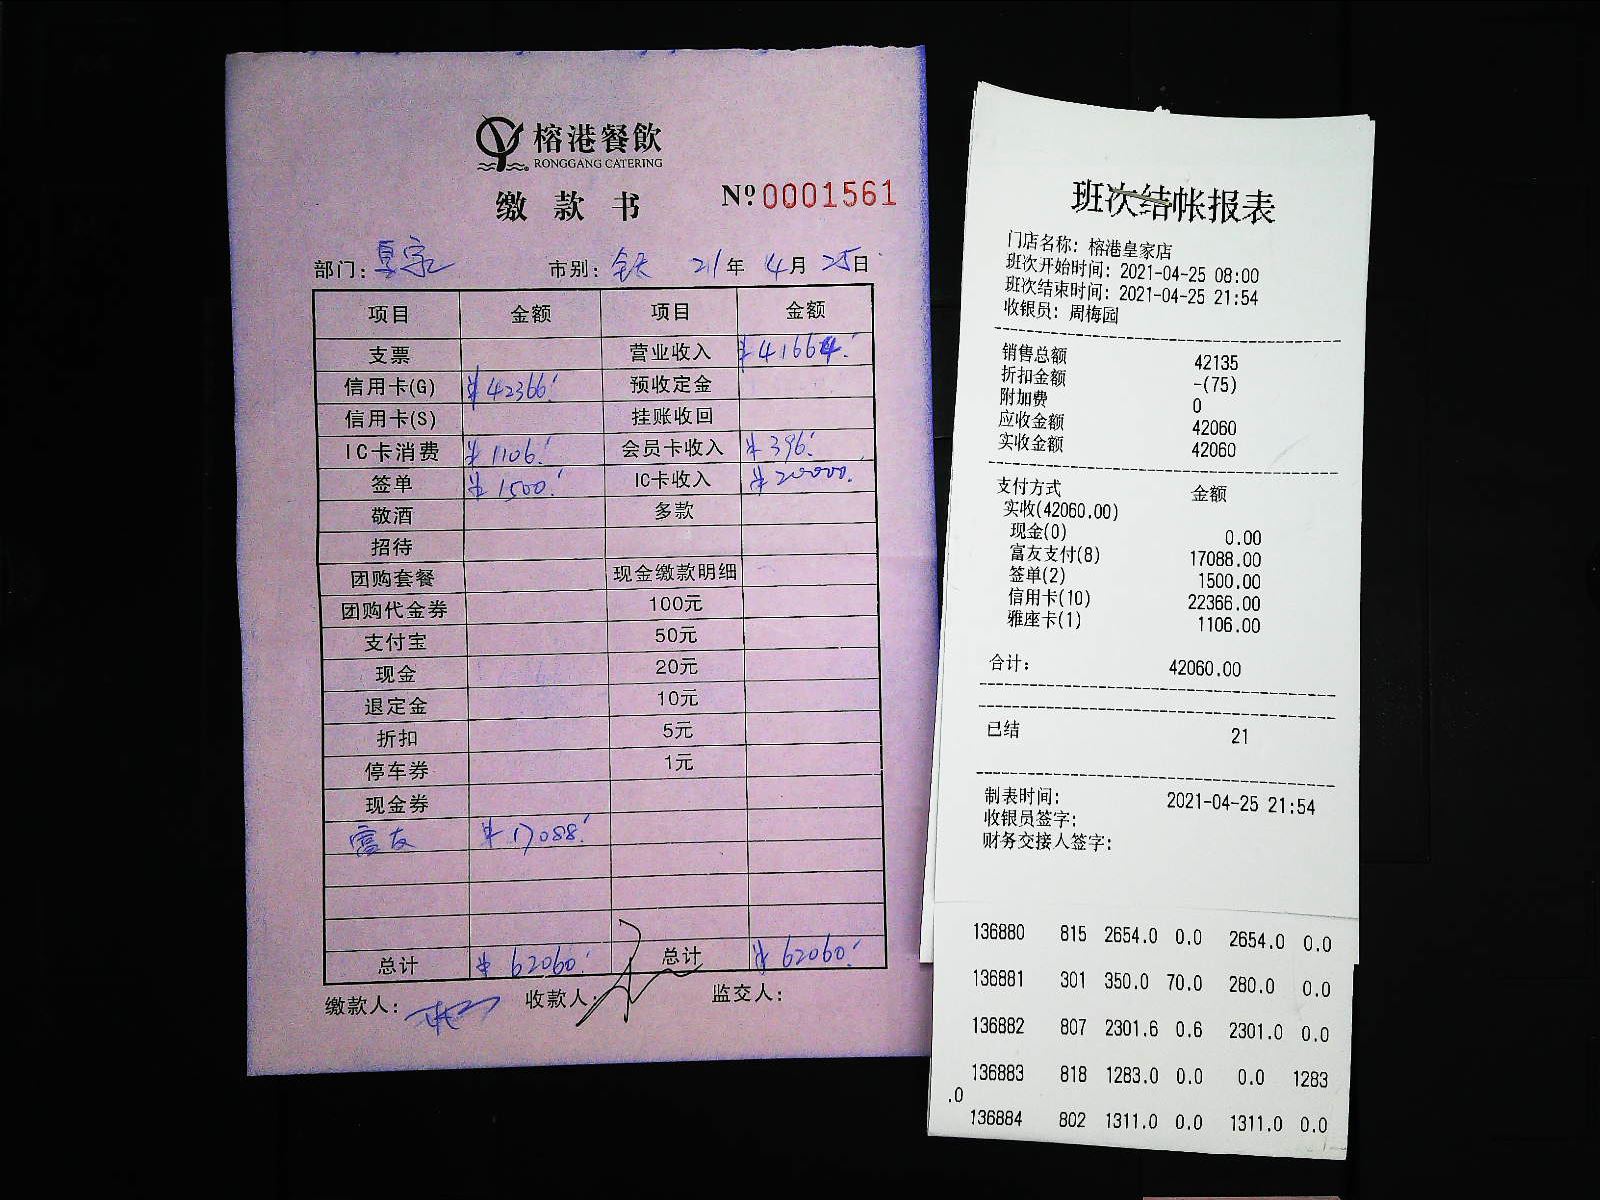 榕港餐飲
RONGGANG CATERING
缴款书
Nº0001561
部门：皇家 市别：全天 21年 4月 25日
项目 金额 项目 金额
支票 营业收入 ¥41664.
信用卡(G) ¥42366. 预收定金
信用卡(S) 挂账收回
IC卡消费 ¥1106. 会员卡收入 ¥396.
签单 ¥1500. IC卡收入 ¥20000.
敬酒 多款
招待
团购套餐 现金缴款明细
团购代金券 100元
支付宝 50元
现金 20元
退定金 10元
折扣 5元
停车券 1元
现金券
富友 ¥17088.
总计 ¥62060. 总计 ¥62060.
缴款人： 收款人： 监交人：
班次结帐报表
门店名称：榕港皇家店
班次开始时间：2021-04-25 08:00
班次结束时间：2021-04-25 21:54
收银员：周梅园
销售总额 42135
折扣金额 -(75)
附加费 0
应收金额 42060
实收金额 42060
支付方式 金额
实收(42060.00)
现金(0) 0.00
富友支付(8) 17088.00
签单(2) 1500.00
信用卡(10) 22366.00
雅座卡(1) 1106.00
合计： 42060.00
已结 21
制表时间： 2021-04-25 21:54
收银员签字：
财务交接人签字：
136880 815 2654.0 0.0 2654.0 0.0
136881 301 350.0 70.0 280.0 0.0
136882 807 2301.6 0.6 2301.0 0.0
136883 818 1283.0 0.0 0.0 1283
.0
136884 802 1311.0 0.0 1311.0 0.0